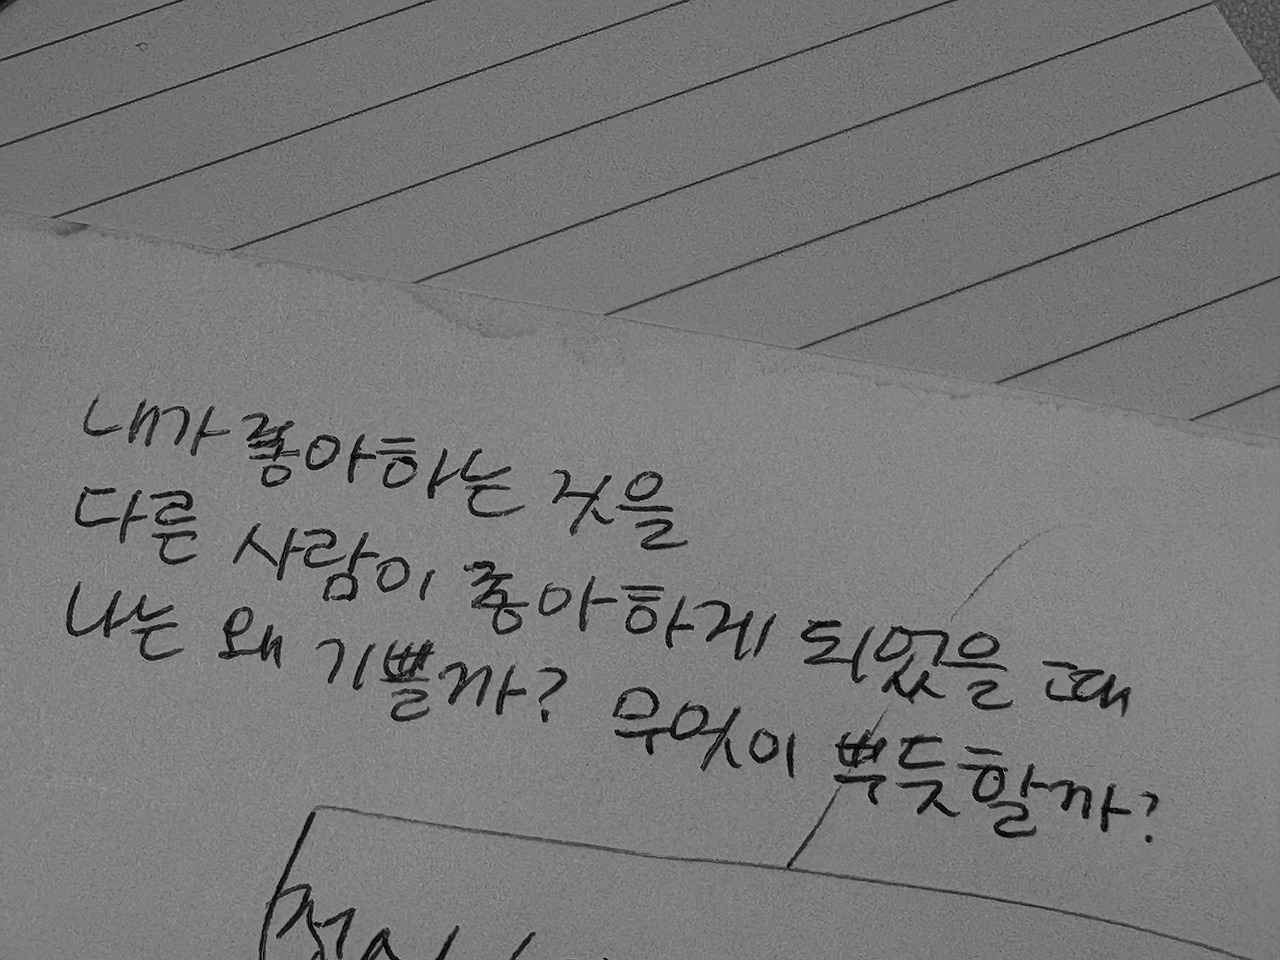 내가 좋아하는 것을
다른 사람이 좋아하게 되었을 때
나는 왜 기쁠까? 무엇이 뿌듯할까?